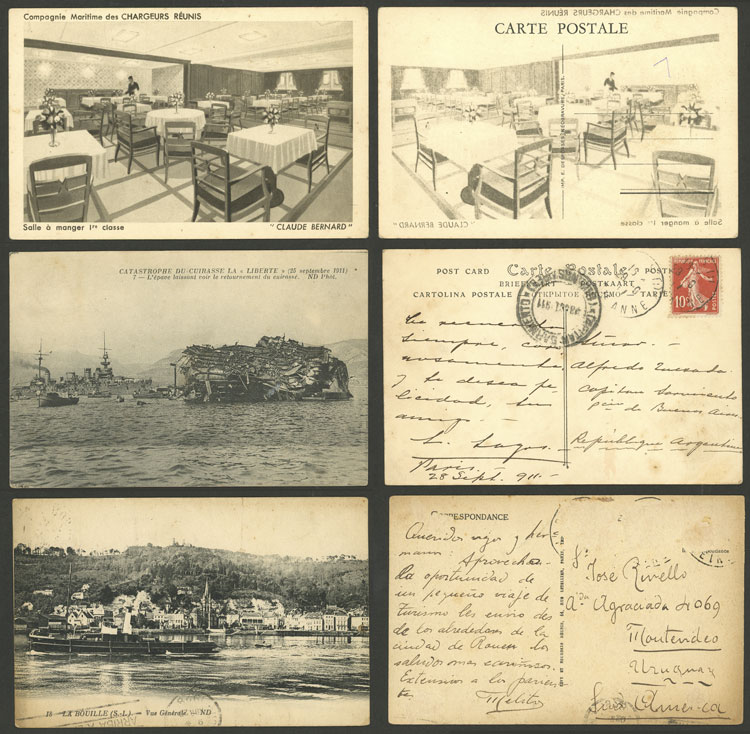 Compagnie Maritime des CHARGEURS RÉUNIS
Salle à manger 1re classe
"CLAUDE BERNARD"
Compagnie Maritime des CHARGEURS RÉUNIS
CARTE POSTALE
"CLAUDE BERNARD"
Salle à manger 1re classe
CATASTROPHE DU CUIRASSÉ LA « LIBERTÉ » (25 septembre 1911)
7 — L'épave laissant voir le retournement du cuirassé. ND Phot.
POST CARD Carte Postale
POSTKAART
CARTOLINA POSTALE ОТКРЫТОЕ
POSTES
10
Te recuerda
siempre,
y te desea fe-
licidad, tu
amigo.
L. Lagos.
Paris —
28 Sept. 911 —
Alfredo
Capitan Sarmiento
de Buenos Aires
República Argentina
18 LA BOUILLE (S.-I.) — Vue Générale. — ND
CORRESPONDANCE
Queridos y her-
mano: Aprovechan-
la oportunidad de
un pequeño viaje de
turismo les envio des
de los alrededores de la
ciudad de Rouen los
saludos mas cariñosos.
Extensivos a los parien-
tes.
Sr.
José Rivello
Avda Agraciada 4069
Montevideo
Uruguay
Sud America